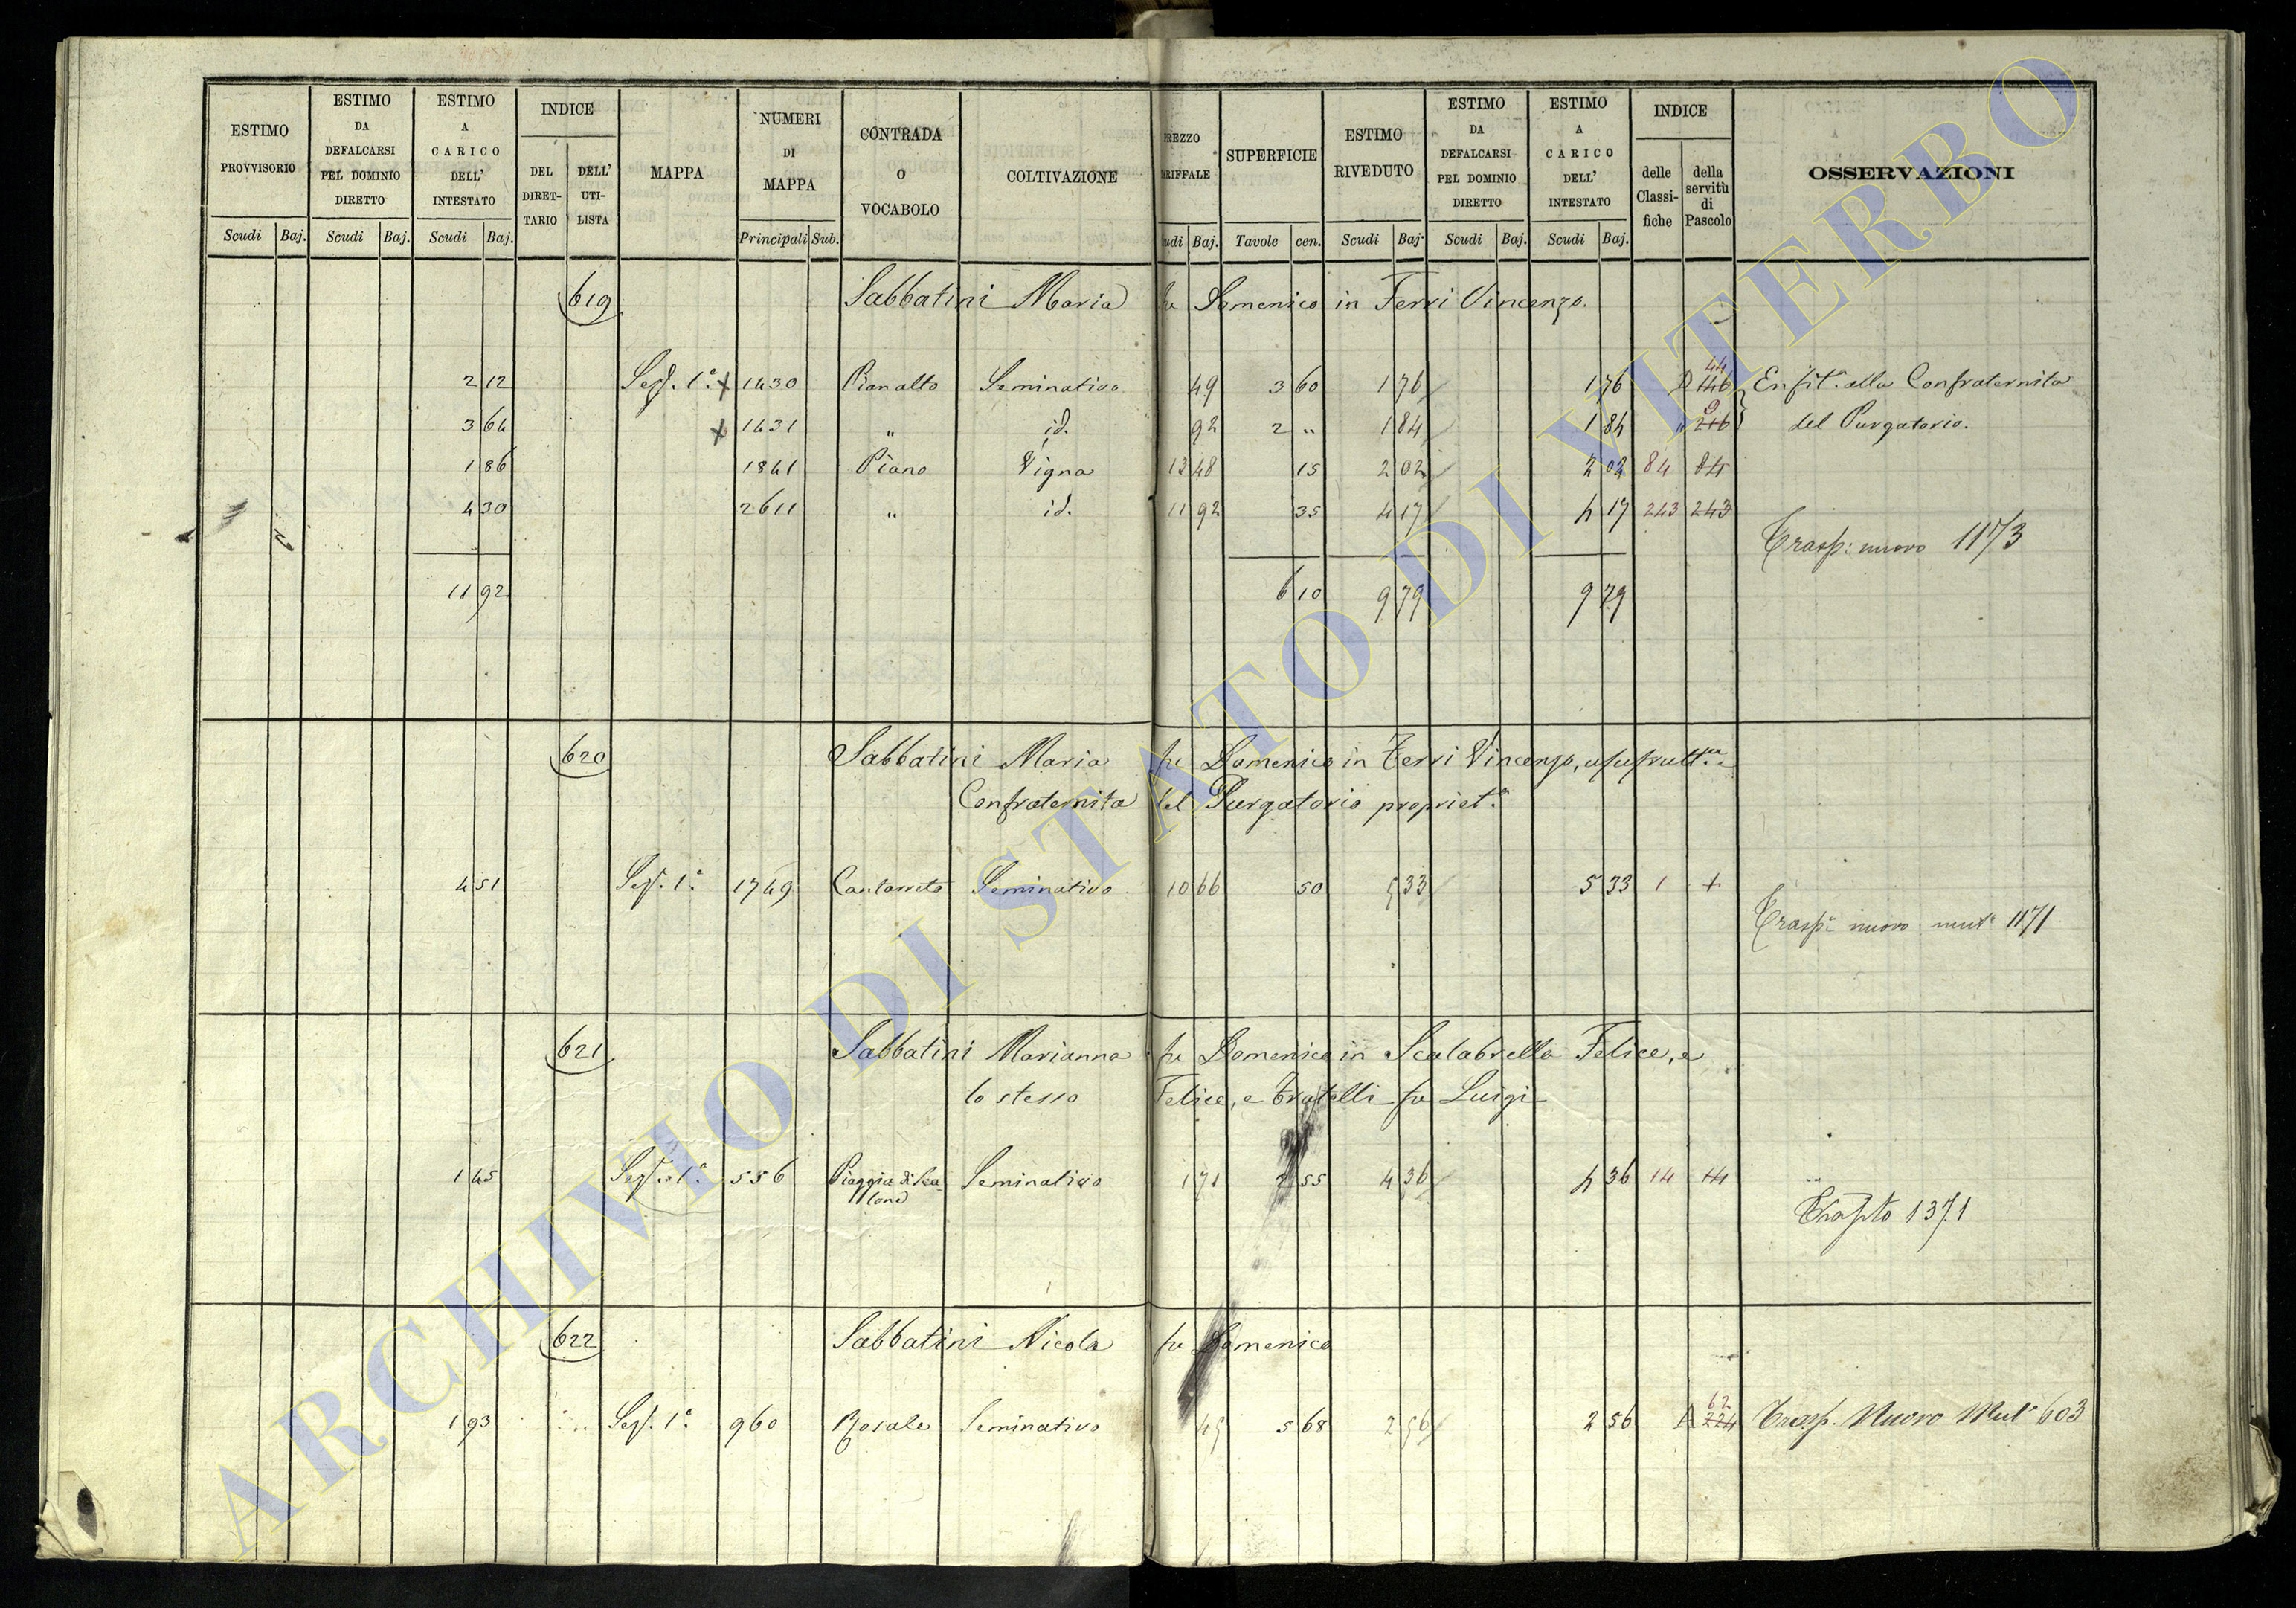 ESTIMO PROVVISORIO
ESTIMO DA DEFALCARSI PEL DOMINIO DIRETTO
ESTIMO A CARICO DELL' INTESTATO
INDICE
DEL DIRET-TARIO
DELL' UTI-LISTA
MAPPA
NUMERI DI MAPPA
CONTRADA O VOCABOLO
COLTIVAZIONE
REZZO RIFFALE
SUPERFICIE
ESTIMO RIVEDUTO
ESTIMO DA DEFALCARSI PEL DOMINIO DIRETTO
ESTIMO A CARICO DELL' INTESTATO
INDICE
delle Classi-fiche
della servitù di Pascolo
OSSERVAZIONI
Scudi Baj. Scudi Baj. Scudi Baj. Principali Sub. udi Baj. Tavole cen. Scudi Baj. Scudi Baj. Scudi Baj.
619 Sabbatini Maria fu Domenico in Ferri Vincenzo.
44
2 12 Sez. 1a. x 1430 Pianalto Seminativo 49 3 60 1 76 1 76 D 146 Enfita. alla Confraternita
9
3 64 x 1431 " id. 92 2 " 1 84 1 84 " 216 del Purgatorio.
1 86 1841 Piano Vigna 13 48 15 2 02 2 02 84 84
4 30 2611 " id. 11 92 35 4 17 4 17 243 243
Trasp: nuovo 1173
11 92 6 10 9 79 9 79
620 Sabbatini Maria fu Domenico in Ferri Vincenzo, usufrutt.
Confraternita del Purgatorio propriet.
4 51 Sez. 1a. 1749 Seminativo 10 66 50 5 33 5 33 1 +
Trasp. nuovo mut. 1171
621 Sabbatini Marianna fu Domenico in Scalabrella Felice, e
lo stesso Felice, e Fratelli fu Luigi
1 45 Sez. 1a. 556 Piaggia di Sca-lone Seminativo 1 71 2 55 4 36 4 36 14 14
Trasp.to 1371
622 Sabbatini Nicola fu Domenico
62
1 93 Sez. 1a. 960 Rosale Seminativo 45 5 68 2 56 2 56 D 224 Trasp. Nuovo Mut. 603
ARCHIVIO DI STATO DI VITERBO